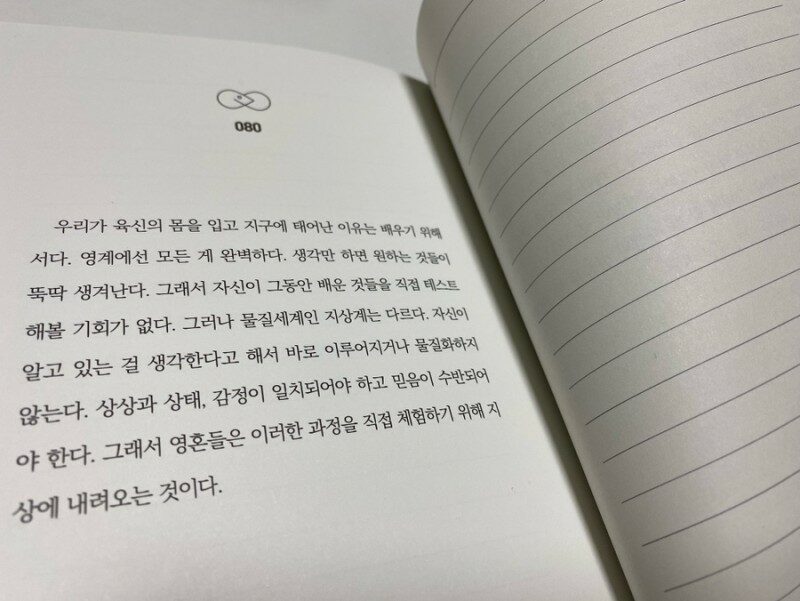 080
우리가 육신의 몸을 입고 지구에 태어난 이유는 배우기 위해
서다. 영계에선 모든 게 완벽하다. 생각만 하면 원하는 것들이
뚝딱 생겨난다. 그래서 자신이 그동안 배운 것들을 직접 테스트
해볼 기회가 없다. 그러나 물질세계인 지상계는 다르다. 자신이
알고 있는 걸 생각한다고 해서 바로 이루어지거나 물질화하지
않는다. 상상과 상태, 감정이 일치되어야 하고 믿음이 수반되어
야 한다. 그래서 영혼들은 이러한 과정을 직접 체험하기 위해 지
상에 내려오는 것이다.